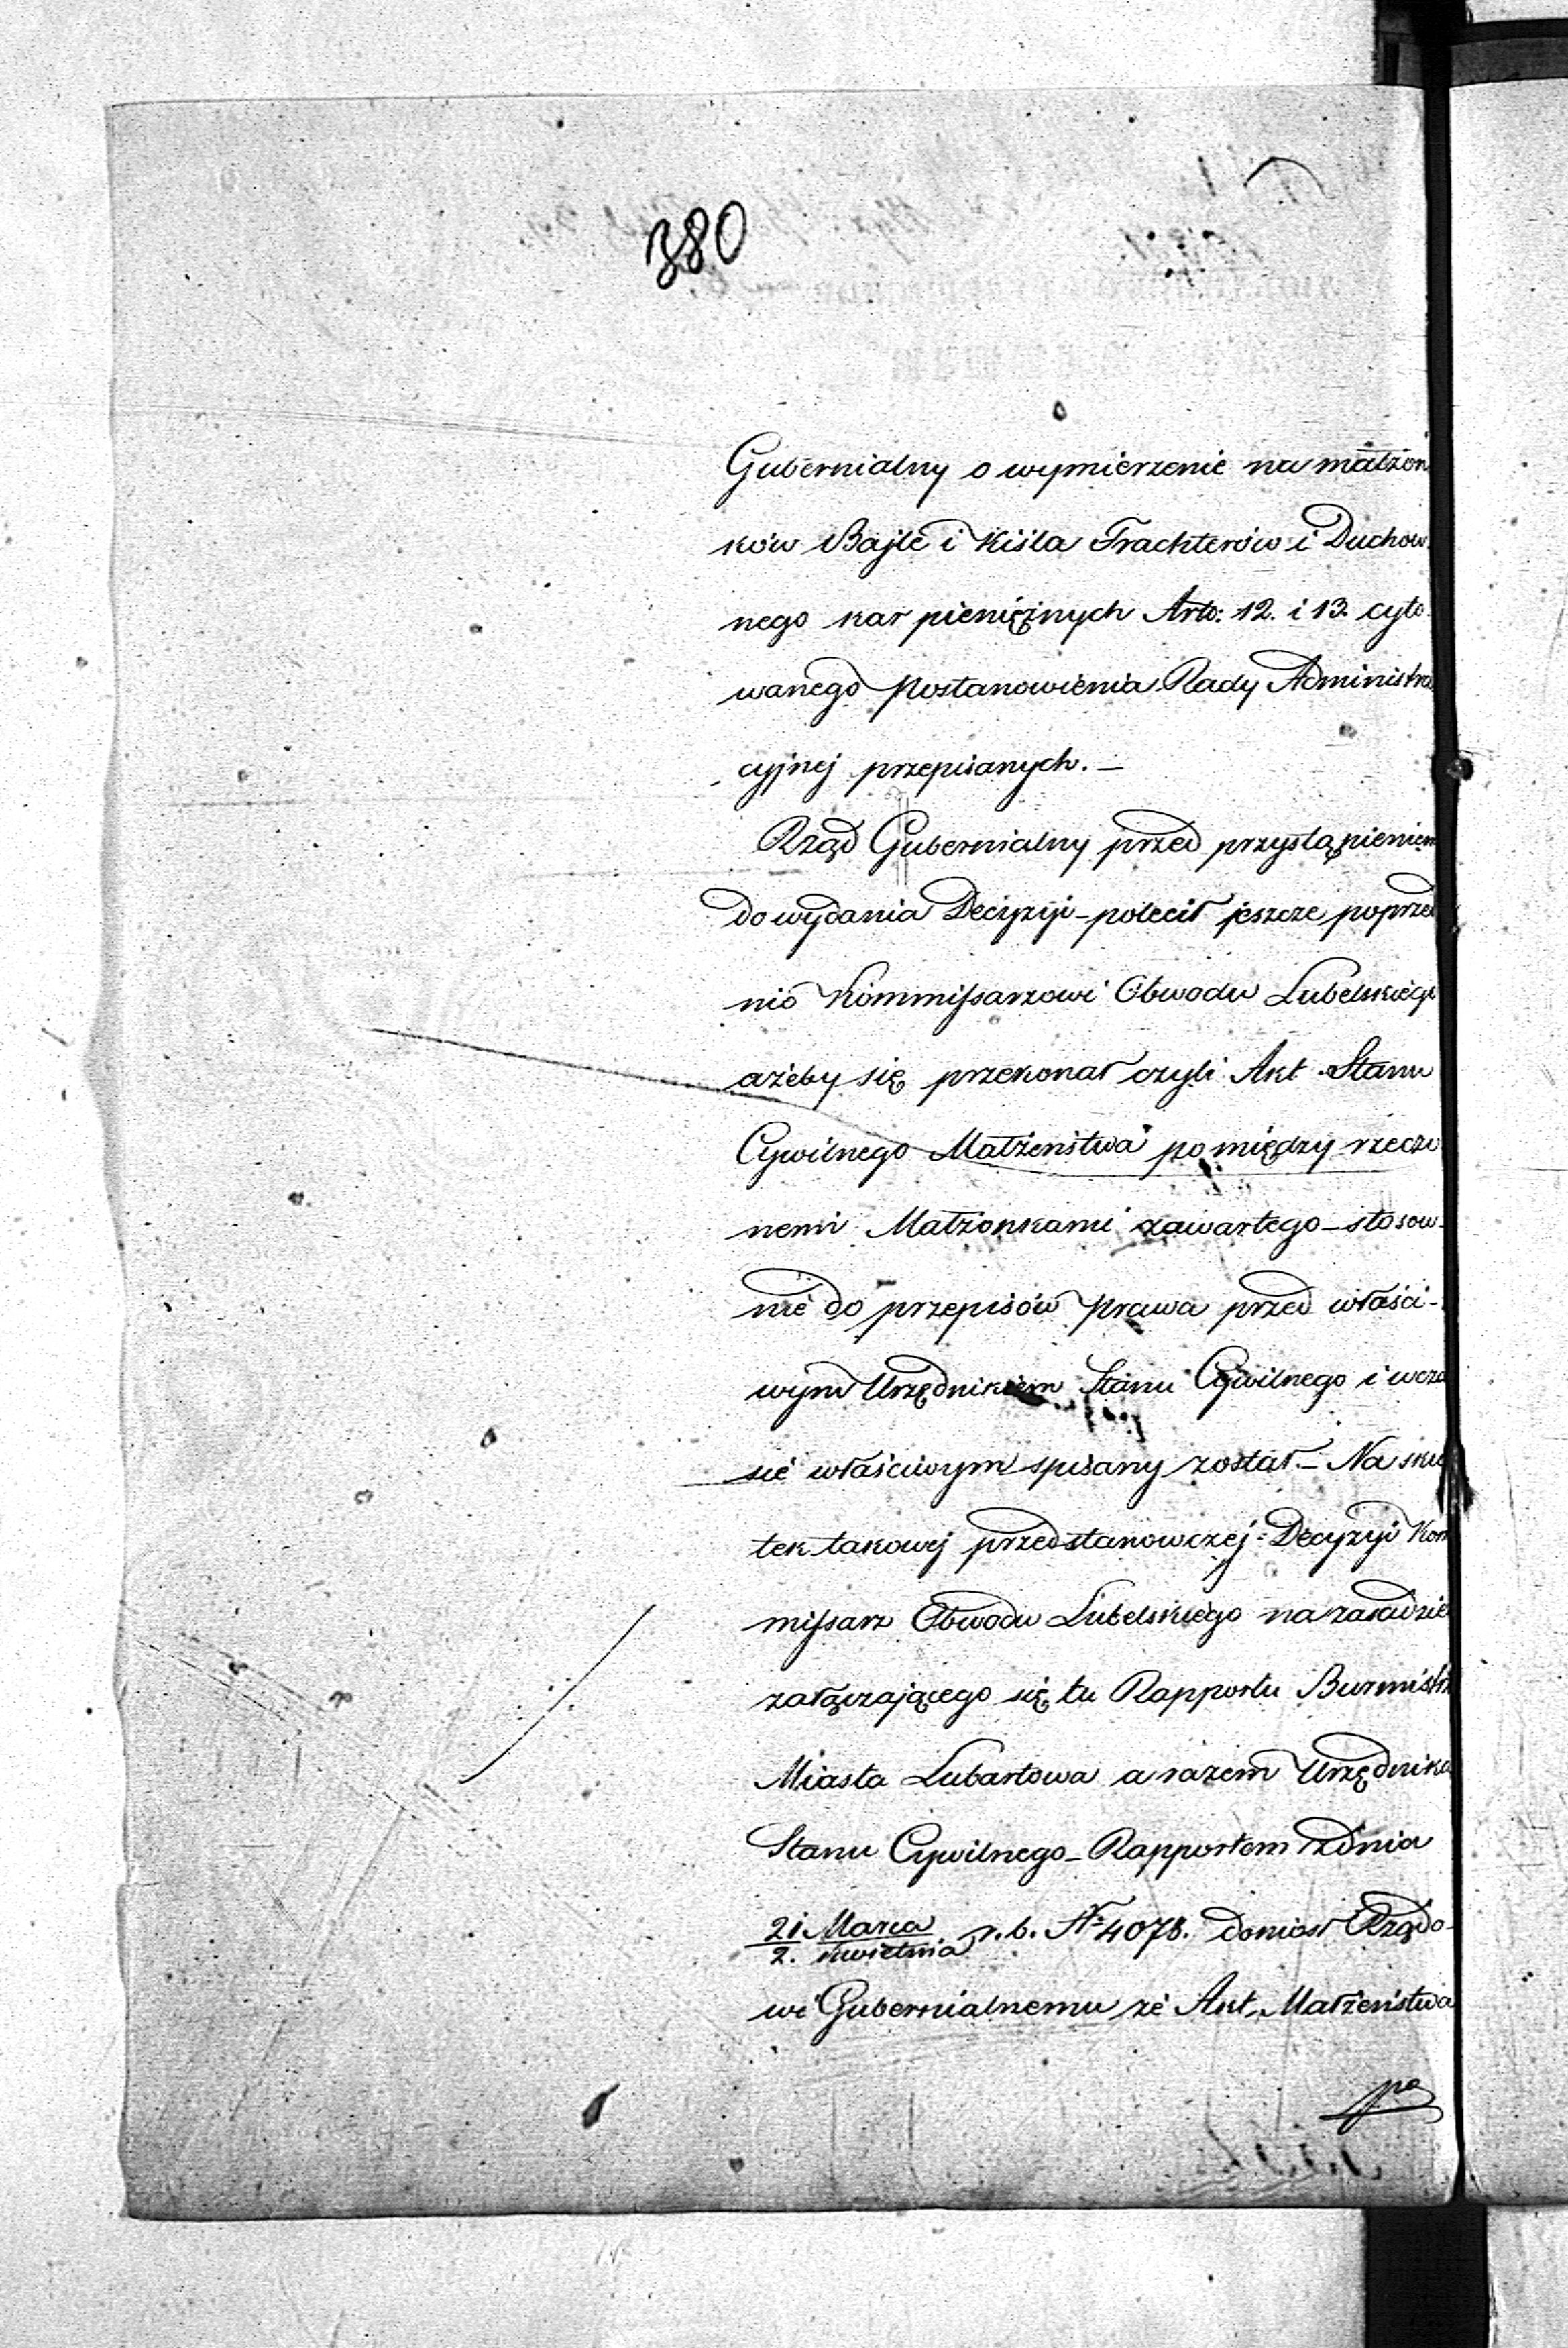 380
Gubernialny o wymierzenie na małżon
ków Bajlę i Kiśla Trachterów i Duchow.
nego kar pieniężnych Arto: 12. i 13. cyto.
wanego Postanowienia Rady Administra
cyjnej przepisanych. —
Rząd Gubernialny przed przystąpieniem
do wydania Decyzyi - polecił jeszcze poprzed
nio Kommissarzowi Obwodu Lubelskiego
ażeby się przekonał czyli Akt Stanu
Cywilnego Małżeństwa pomiędzy rzeczo
nemi Małżonkami zawartego - stosow-
nie do przepisów prawa przed właści-
wym Urzędnikiem Stanu Cywilnego i wcza
sie właściwym spisany został. - Na sku
tek takowej przedstanowczej Decyzyi Kom
missarz Obwodu Lubelskiego na zasadzie
załączającego się tu Rapportu Burmistrz
Miasta Lubartowa a razem Urzędnika
Stanu Cywilnego - Rapportem z dnia
21 Marca / 2. Kwietnia r. b. Nº 4078. doniósł Rządo-
wi Gubernialnemu że Akt Małżeństwa